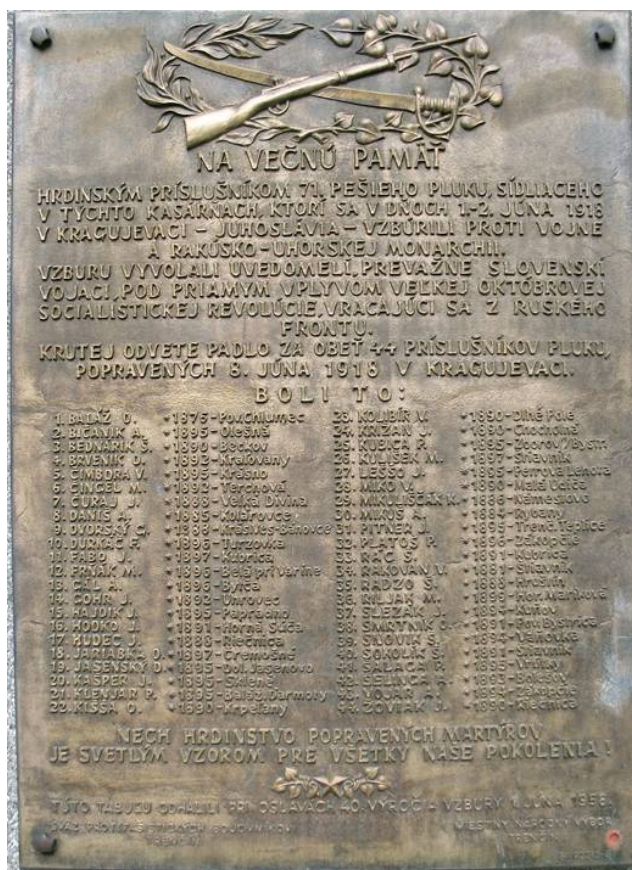 NA VEČNÚ PAMÄŤ
HRDINSKÝM PRÍSLUŠNÍKOM 71. PEŠIEHO PLUKU, SÍDLIACEHO
V TÝCHTO KASÁRŇACH, KTORÍ SA V DŇOCH 1.-2. JÚNA 1918
V KRAGUJEVACI - JUHOSLÁVIA - VZBÚRILI PROTI VOJNE
A RAKÚSKO-UHORSKEJ MONARCHII.
VZBURU VYVOLALI UVEDOMELÍ, PREVAŽNE SLOVENSKÍ
VOJACI, POD PRIAMYM VPLYVOM VEĽKEJ OKTÓBROVEJ
SOCIALISTICKEJ REVOLÚCIE, VRACAJÚCI SA Z RUSKÉHO
FRONTU.
KRUTEJ ODVETE PADLO ZA OBEŤ 44 PRÍSLUŠNÍKOV PLUKU,
POPRAVENÝCH 8. JÚNA 1918 V KRAGUJEVACI.
BOLI TO:
1. BALÁŽ O. *1875-Pov.Chlumec
2. BIČANÍK A. *1895-Olešná
3. BEDNÁRIK Š. *1890-Beckov
4. BRVENÍK J. *1892-Kraľovany
5. CIMBORA V. *1895-Krásno
6. CINGEL M. *1892-Terchová
7. CURAJ J. *1888-Veľká Divina
8. DANIŠ A. *1885-Kolárovce
9. DVORSKÝ G. *1888-Krásnaves-Bánovce
10. DURKÁČ F. *1896-Turzovka
11. FABO J. *1897-Kubrica
12. FRŇÁK M. *1896-Belá pri Varíne
13. GÁL A. *1896-Bytča
14. GOHR J. *1892-Uhrovec
15. HAJDÍK J. *1895-Papradno
16. HODKO J. *1891-Horná Súča
17. HUDEC J. *1888-Riečnica
18. JARIABKA O. *1897-Čremošné
19. JASENSKÝ D. *1895-Dol.Jasenovo
20. KAŠPER J. *1895-Sklené
21. KLENJAR P. *1895-Baláž.Ďarmoty
22. KISSA O. *1890-Krpeľany
23. KOLIBÍR V. *1890-Dlhé Pole
24. KRIŽAN V. *1890-Chocholná
25. KUBICA P. *1885-Zborov/Bystr.
26. KULÍŠEK M. *1897-Štiavnik
27. LEŠŠO J. *1895-Perrova Lehota
28. MIKO V. *1890-Malá Udiča
29. MIKULIŠČÁK K. *1886-Námestovo
30. MIKUŠ A. *1884-Rybany
31. PITNER J. *1895-Trenč.Teplice
32. PLATOŠ P. *1896-Zákopčie
33. RÁC Š. *1891-Kubrica
34. RAKOVAN V. *1881-Štiavnik
35. RADZO Š. *1888-Hruštín
36. RILJAK M. *1899-Hor.Maríková
37. SLEZÁK J. *1894-Kuňov
38. SMRTNÍK G. *1891-Pov.Bystrica
39. SNOVÍK Š. *1894-Vaňovka
40. SOKOLÍK Š. *1891-Štiavnik
41. SALAGA P. *1895-Vrútky
42. SELINGA A.
43. VOJÁR A. *1884-Zákopčie
44. ZOVIAK J. *1890-Riečnica
NECH HRDINSTVO POPRAVENÝCH MARTÝROV
JE SVETLÝM VZOROM PRE VŠETKY NAŠE POKOLENIA!
TÚTO TABUĽU ODHALILI PRI OSLAVÁCH 40. VÝROČIA VZBURY 1. JÚNA 1958.
ZVÄZ PROTIFAŠISTICKÝCH BOJOVNÍKOV
MIESTNY NÁRODNÝ VÝBOR
TRENČÍN